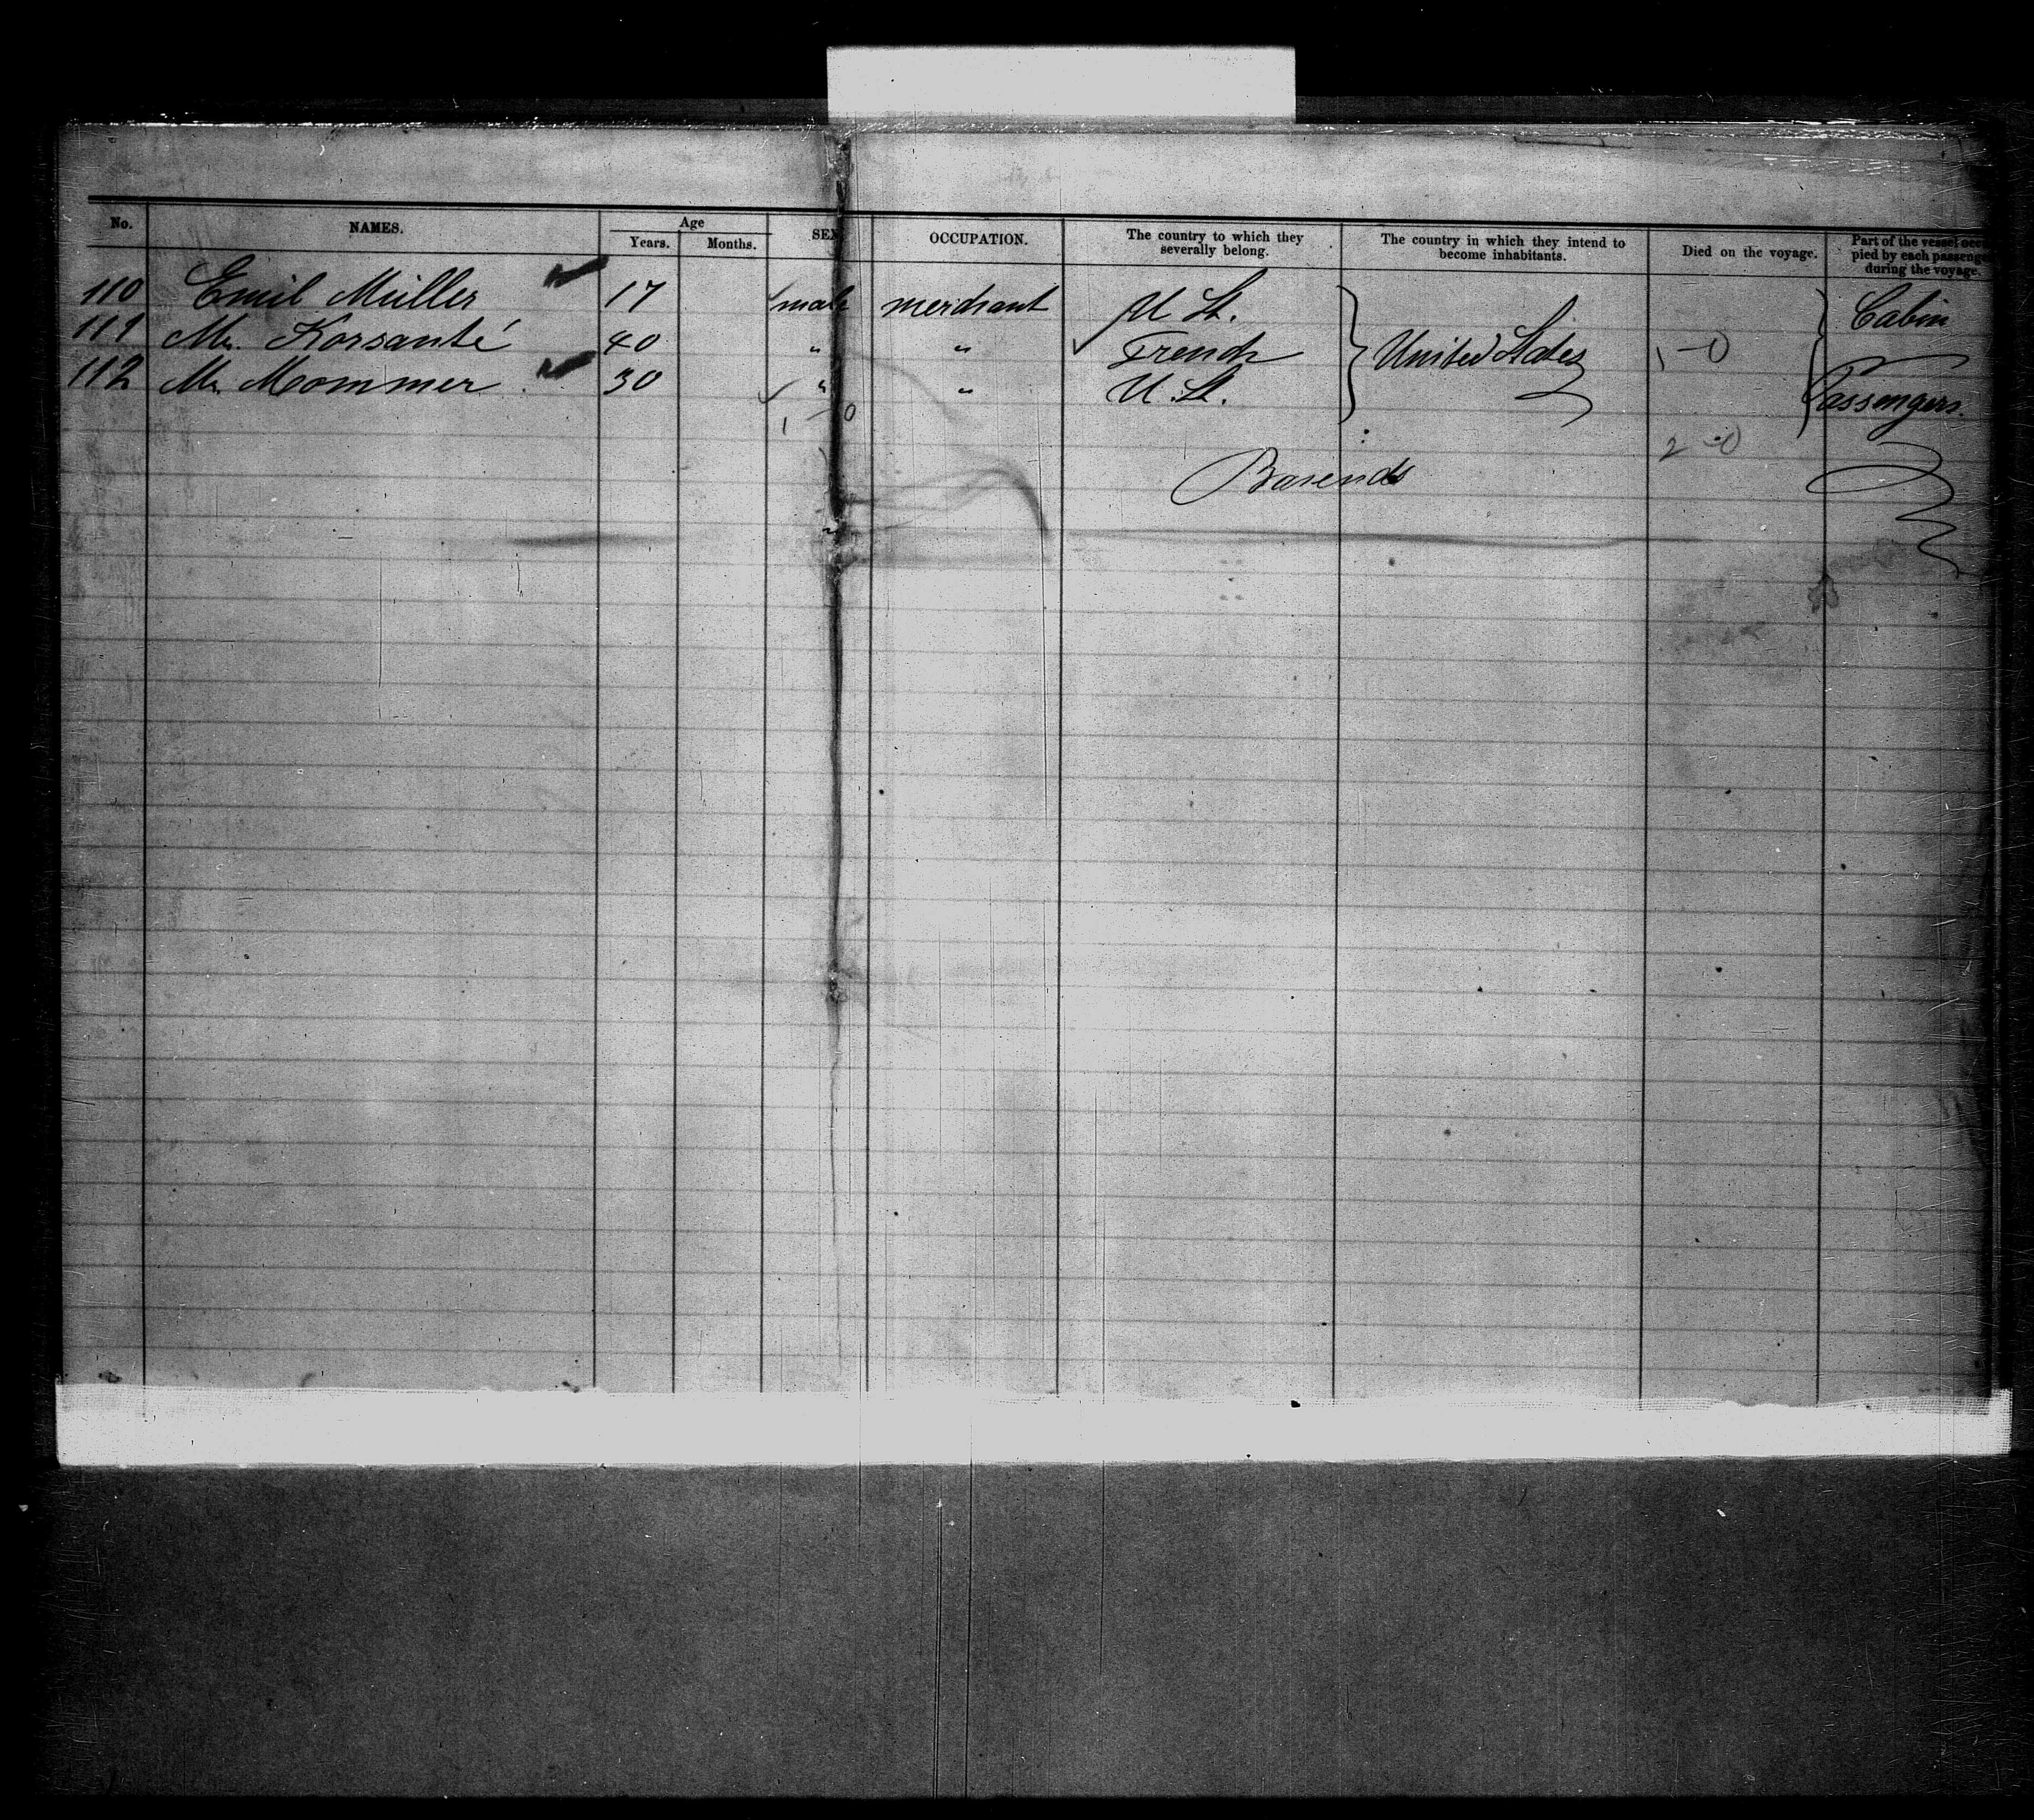 No. NAMES. Age SEX OCCUPATION. The country to which they severally belong. The country in which they intend to become inhabitants. Died on the voyage. Part of the vessel occupied by each passenger during the voyage.
Years. Months.
110 Emil Müller 17 male merchant U St. Cabin
111 Mr. Korsanté 40 " " French United States 1-0
112 Mr. Mommer 30 " " U. St. Passengers.
1-0
2-0
Barends